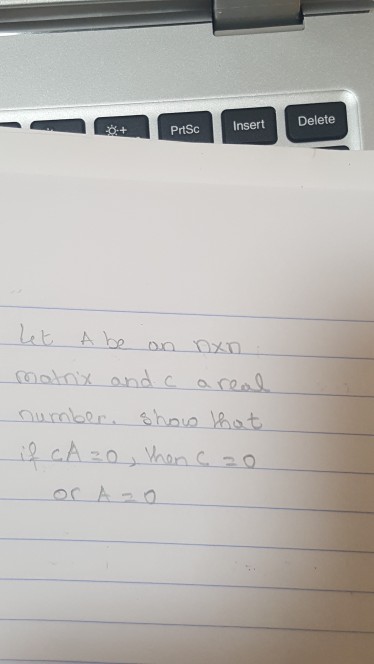 PrtSc Insert Delete
Let A be an nxn
matrix and c a real
number. Show that
if cA=0, then c=0
or A=0